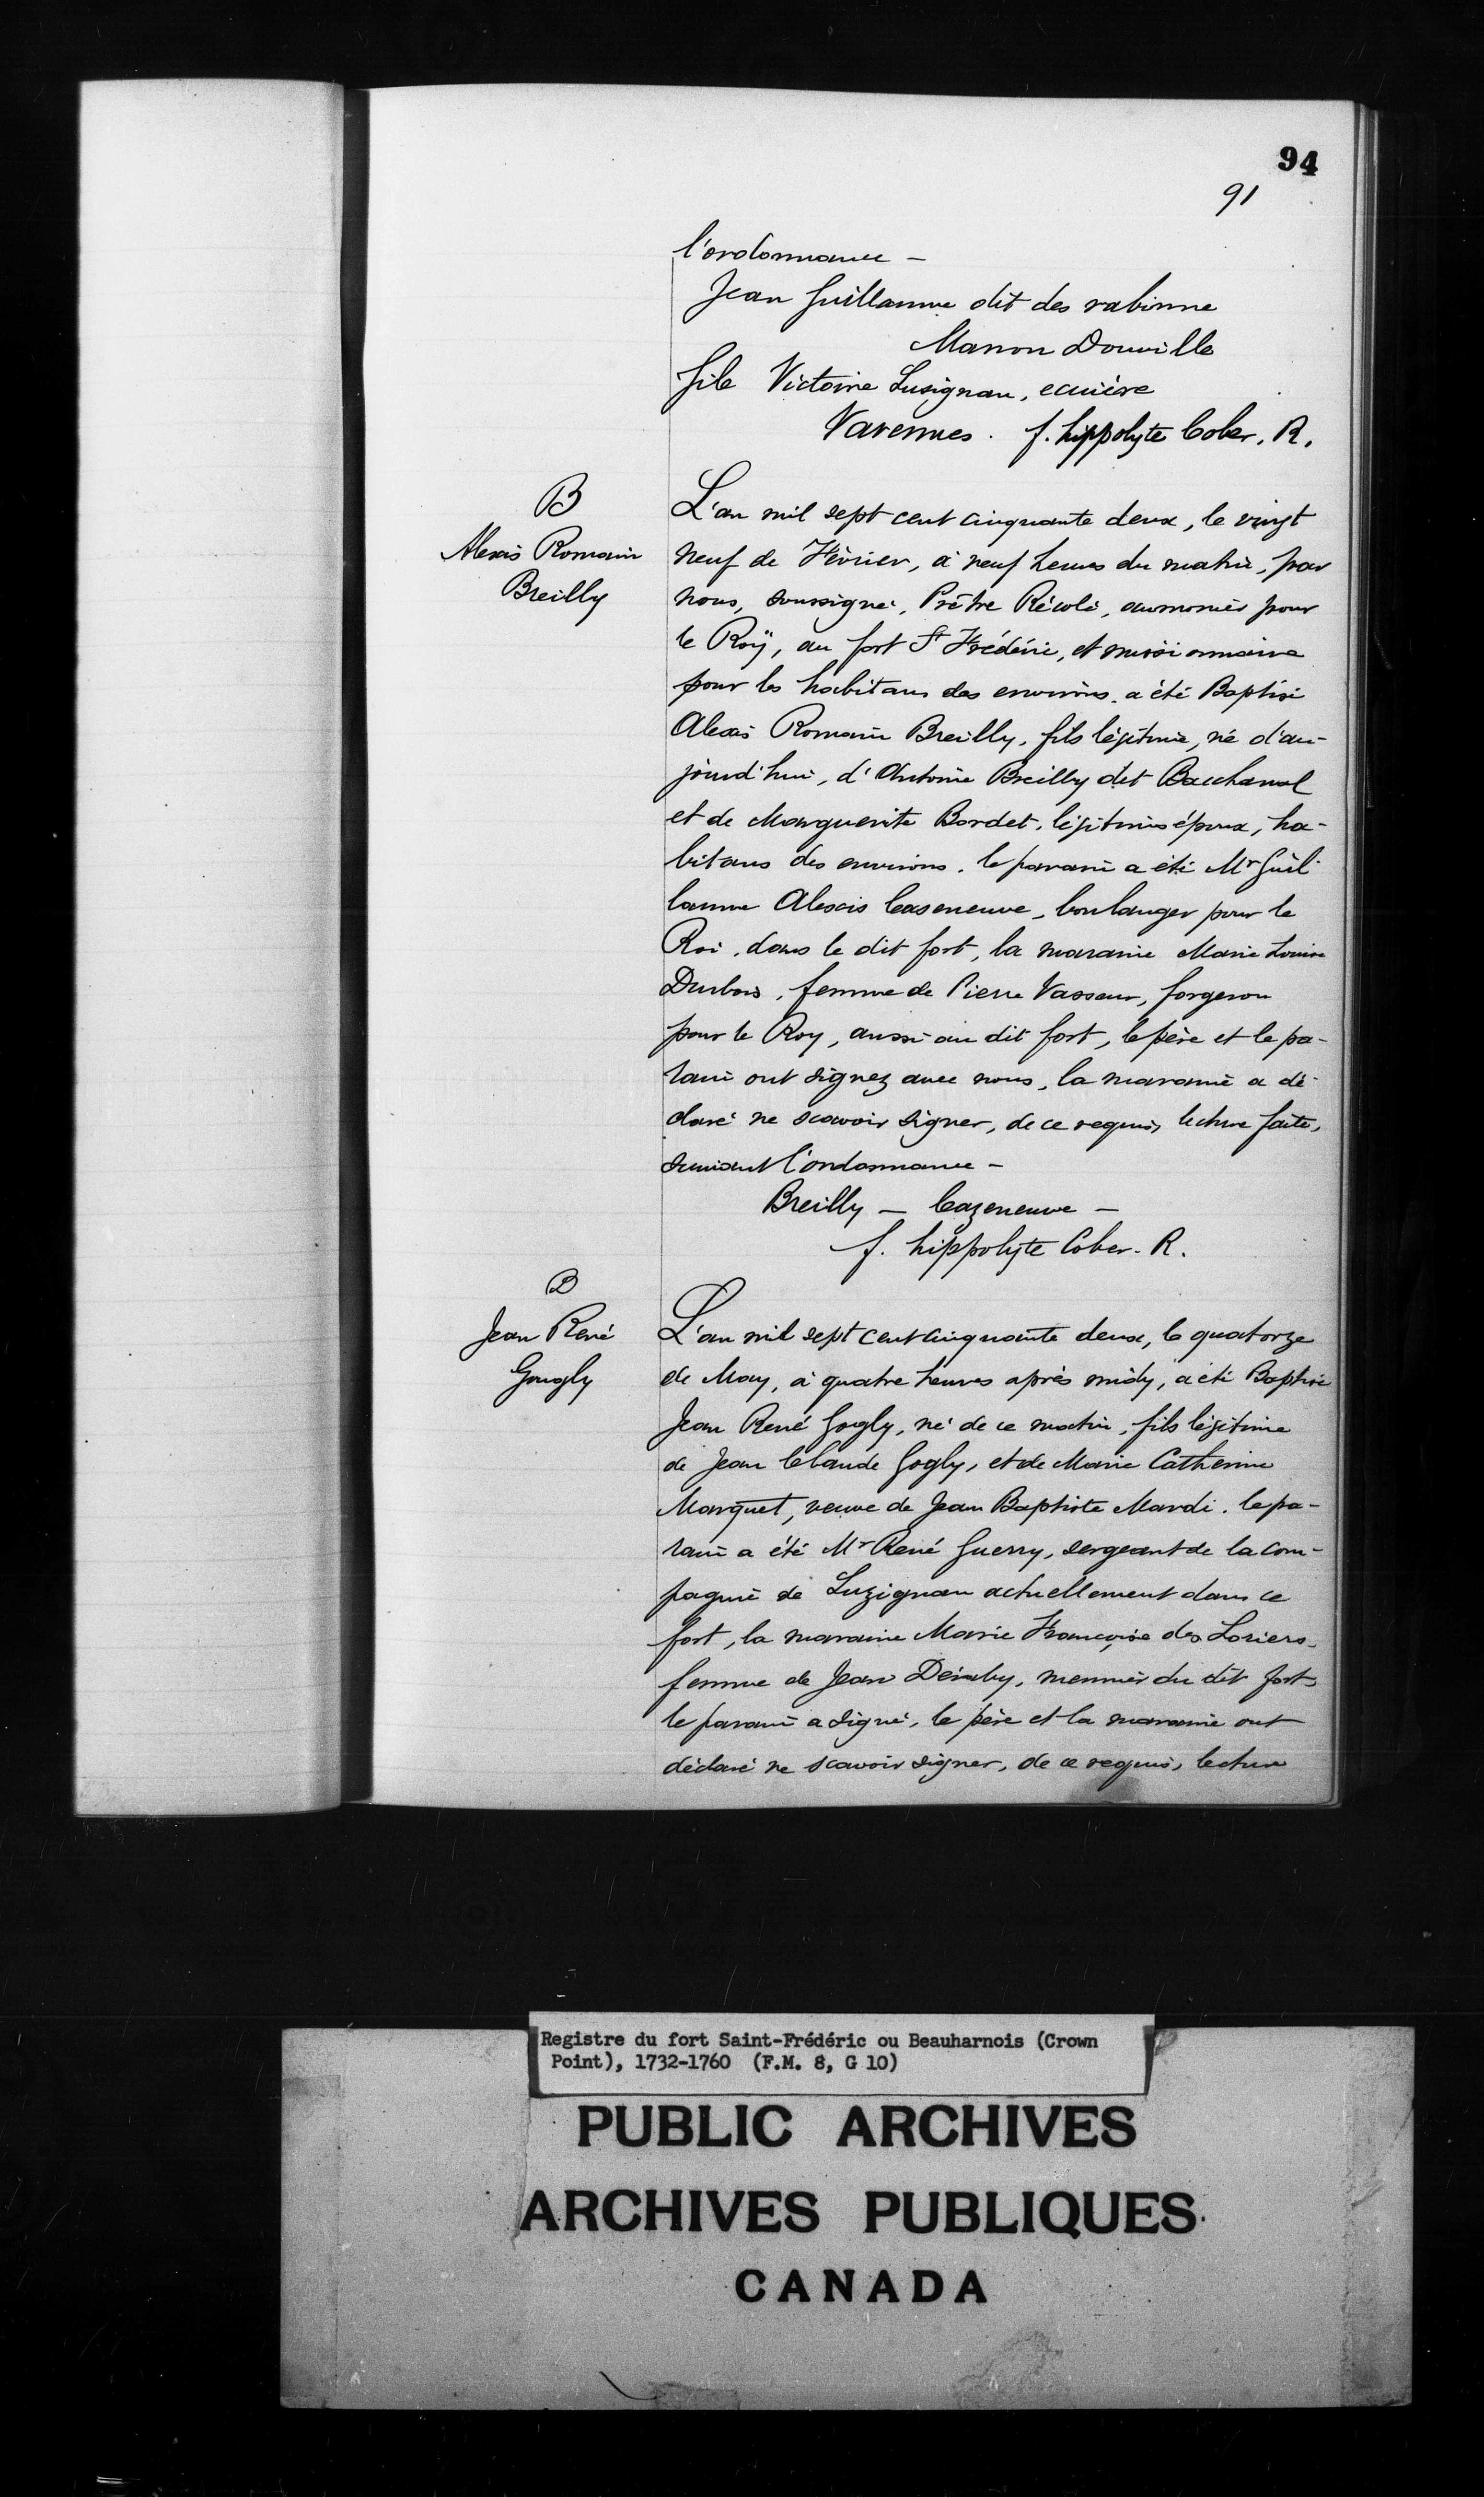 94
91
l'ordonnance —
Jean Guillaume dit des rabinne
Manon Douville
file Victoire Lusignan, ecuière
Varennes. f. hippolyte Cober. R.
B
Alexis Romain
Breilly
L'an mil sept cent cinquante deux, le vingt
neuf de Février, à neuf heures du matin, par
nous, soussigné, Prêtre Récolé, aumonier pour
le Roÿ, au fort St Frédéric, et missionnaire
pour les habitans des environs, a été Baptisé
Alexis Romain Breilly, fils légitime, né d'au-
jourd'hui, d'Antoine Breilly dit Bacchanal
et de Marguerite Bordet, légitimes époux, ha-
bitans des environs. le parain a été Mr Guil-
laume Alexis Caseneuve, boulanger pour le
Roi, dans le dit fort, la maraine Marie Louise
Dubois, femme de Pierre Vasseur, forgeron
pour le Roy, aussi au dit fort, le père et le pa-
rain ont signez avec nous, la maraine a dé-
claré ne scavoir signer, de ce requis, lecture faite,
suivant l'ordonnance —
Breilly — Cazeneuve —
f. hippolyte Cober. R.
B
Jean René
Gougly
L'an mil sept cent cinquante deux, le quatorze
de May, à quatre heures après midy, a été Baptisé
Jean René Gogly, né de ce matin, fils légitime
de Jean Claude Gogly, et de Marie Catherine
Marquet, veuve de Jean Baptiste Mardi. le pa-
rain a été Mr René Guerry, sergeant de la com-
pagnie de Luzignan actuellement dans ce
fort, la maraine Marie Françoise des Loriers
femme de Jean Deruby, meunier du dit fort,
le parain a signé, le père et la maraine ont
déclaré ne scavoir signer, de ce requis, lecture
Registre du fort Saint-Frédéric ou Beauharnois (Crown
Point), 1732-1760 (F.M. 8, G 10)
PUBLIC ARCHIVES
ARCHIVES PUBLIQUES
CANADA